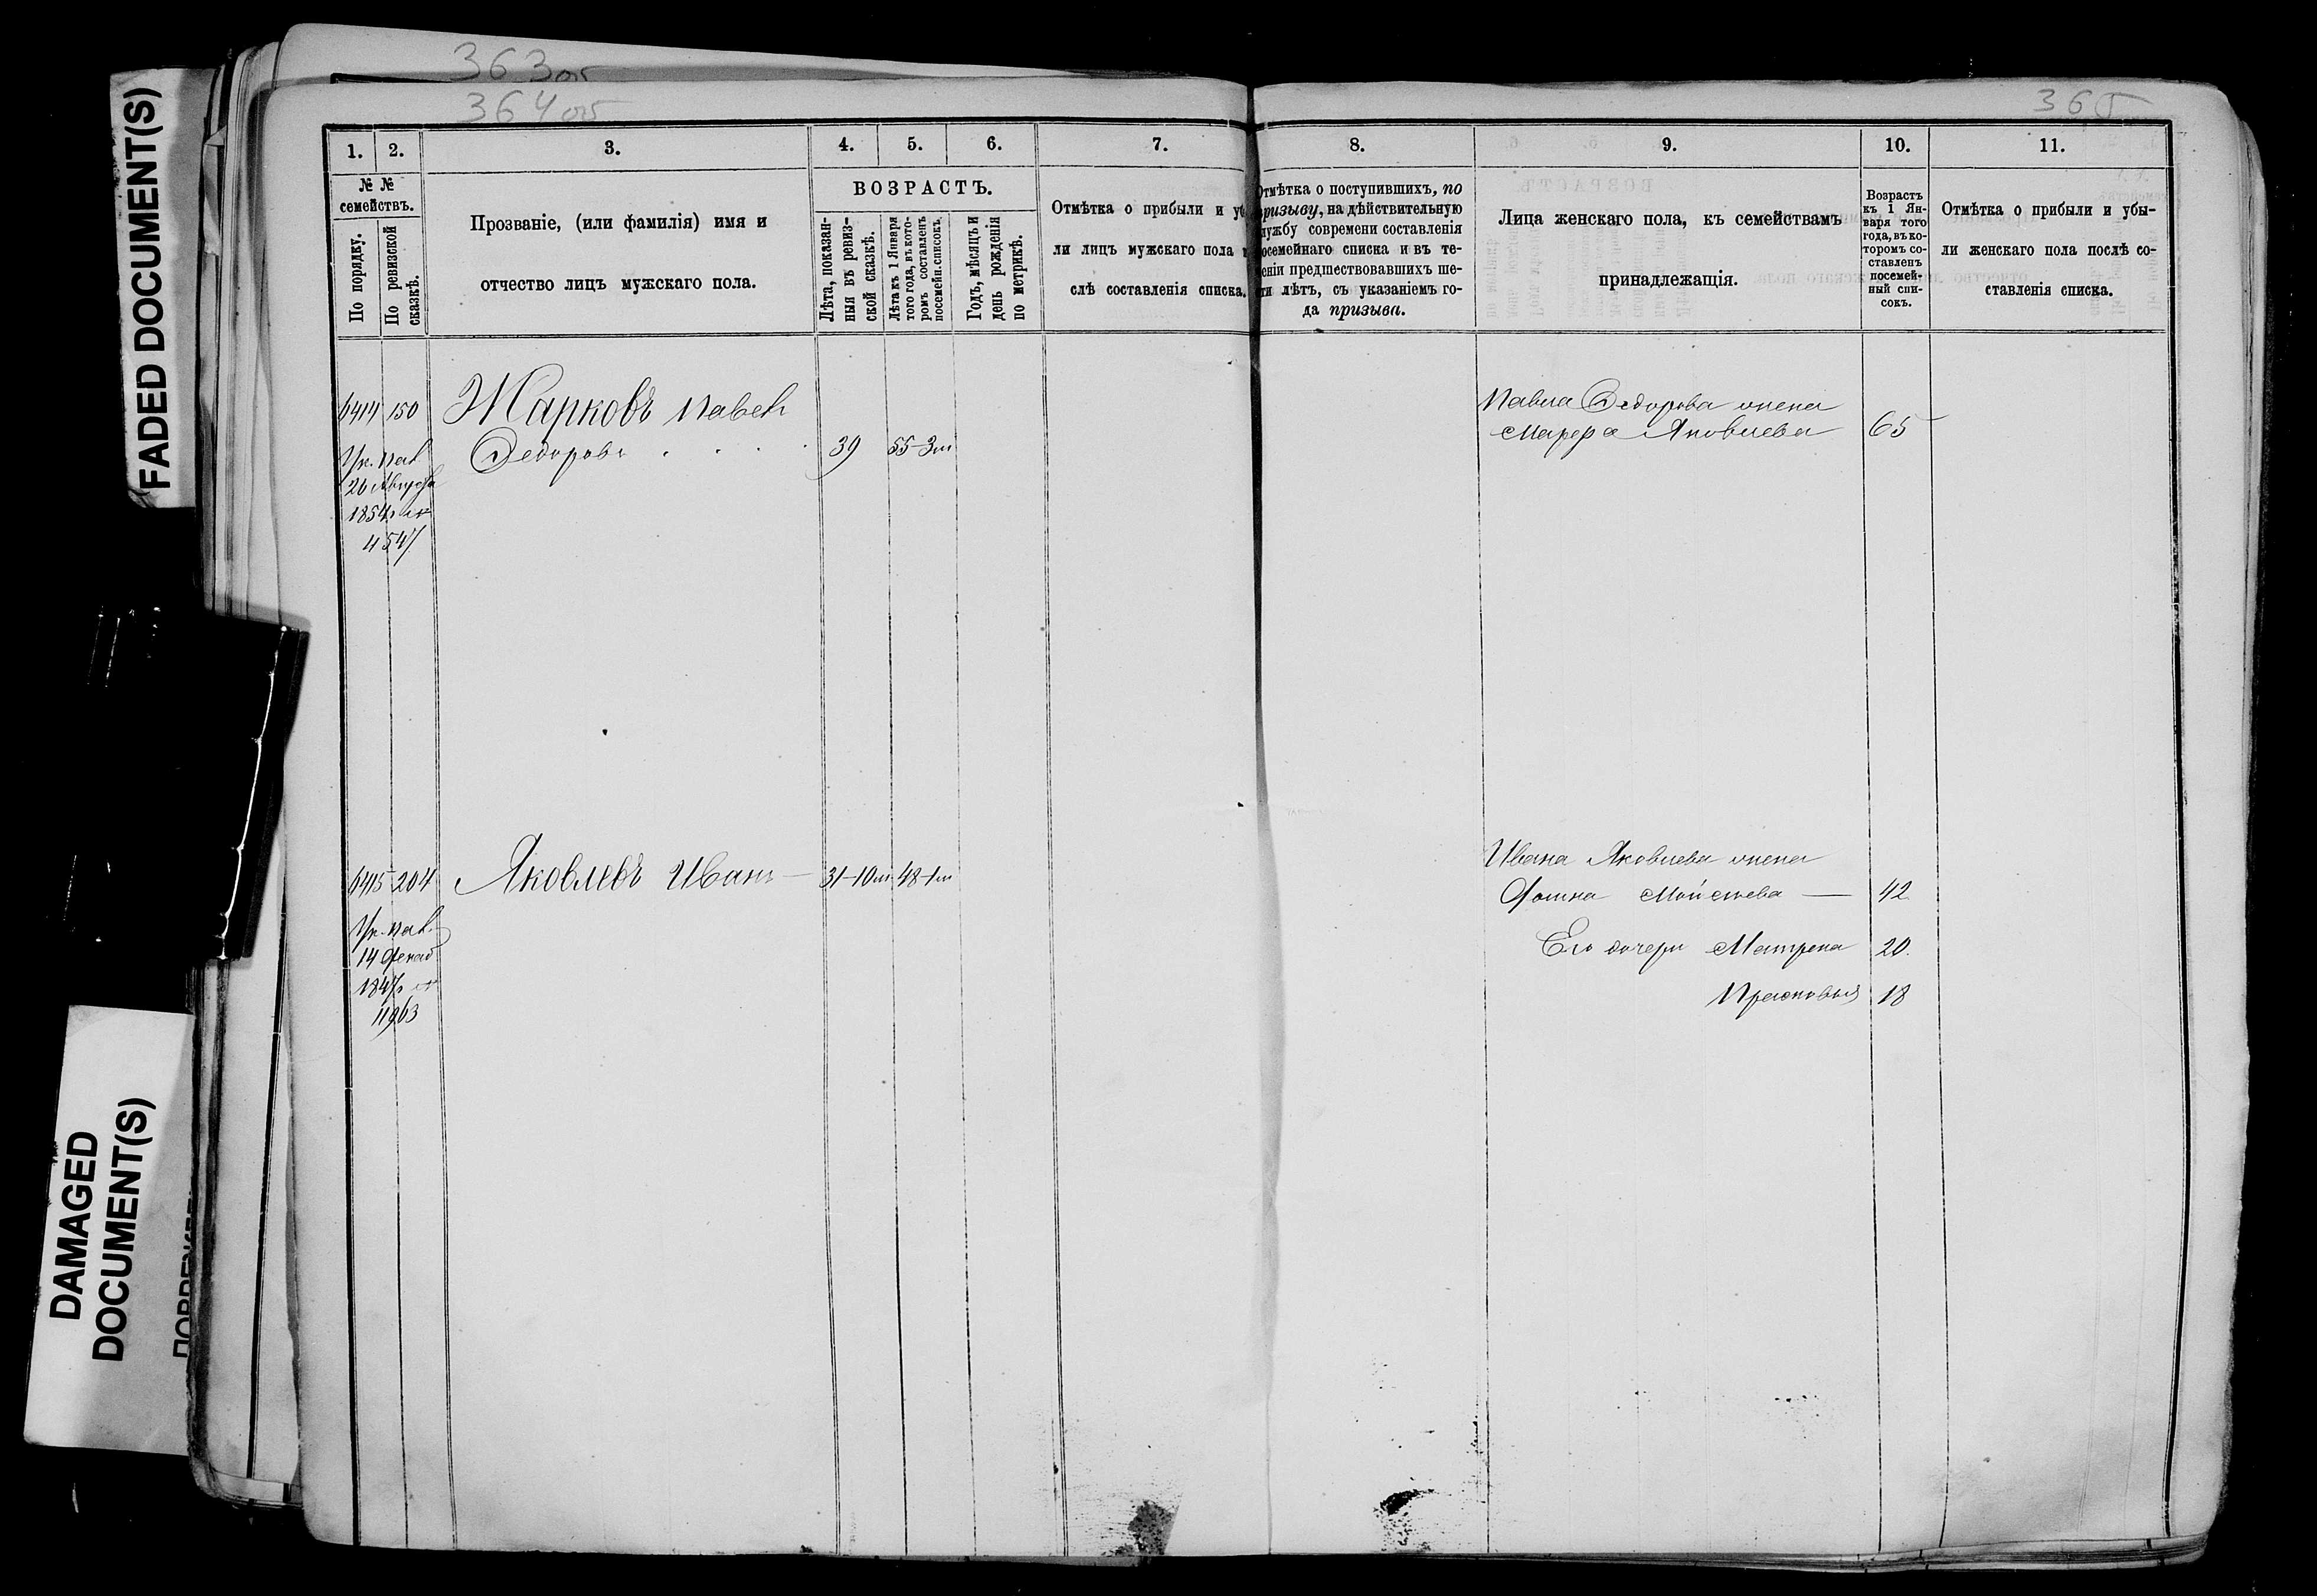 FADED DOCUMENT(S)
DAMAGED
DOCUMENT(S)
363об
364об
365
1. 2. 3. 4. 5. 6. 7. 8. 9. 10. 11.
№ №
семействъ.
По порядку.
По ревизской
сказкѣ.
Прозваніе, (или фамилія) имя и
отчество лицъ мужскаго пола.
ВОЗРАСТЪ.
Лѣта, показан-
ныя въ ревиз-
ской сказкѣ.
Лѣта къ 1 Января
того года, въ кото-
ромъ составленъ
посемейн. списокъ.
Годъ, мѣсяцъ и
день рожденія
по метрикѣ.
Отмѣтка о прибыли и уб
ли лицъ мужскаго пола п
слѣ составленія списка.
Отмѣтка о поступившихъ, по
призыву, на дѣйствительную
лужбу современи составленія
осемейнаго списка и въ те-
еніи предшествовавшихъ ше-
ти лѣтъ, съ указаніемъ го-
да призыва.
Лица женскаго пола, къ семействамъ
принадлежащія.
Возрастъ
къ 1 Ян-
варя того
года, въ ко-
торомъ со-
ставленъ
посемей-
ный спи-
сокъ.
Отмѣтка о прибыли и убы-
ли женскаго пола послѣ со-
ставленія списка.
6414 150 Жарковъ Павелъ
Федоровъ 39 55-3м
Ук. пал
26 Августа
1854г №
4547
Павла Федорова жена
Марфа Яковлева 65
6415 204 Яковлевъ Иванъ — 31-10м 48-1м
Ук. пал.
14 Декаб
1847г №
11963
Ивана Яковлева жена
Фотина Мойсеева — 42
Его дочери Матрена 20.
Прасковья 18